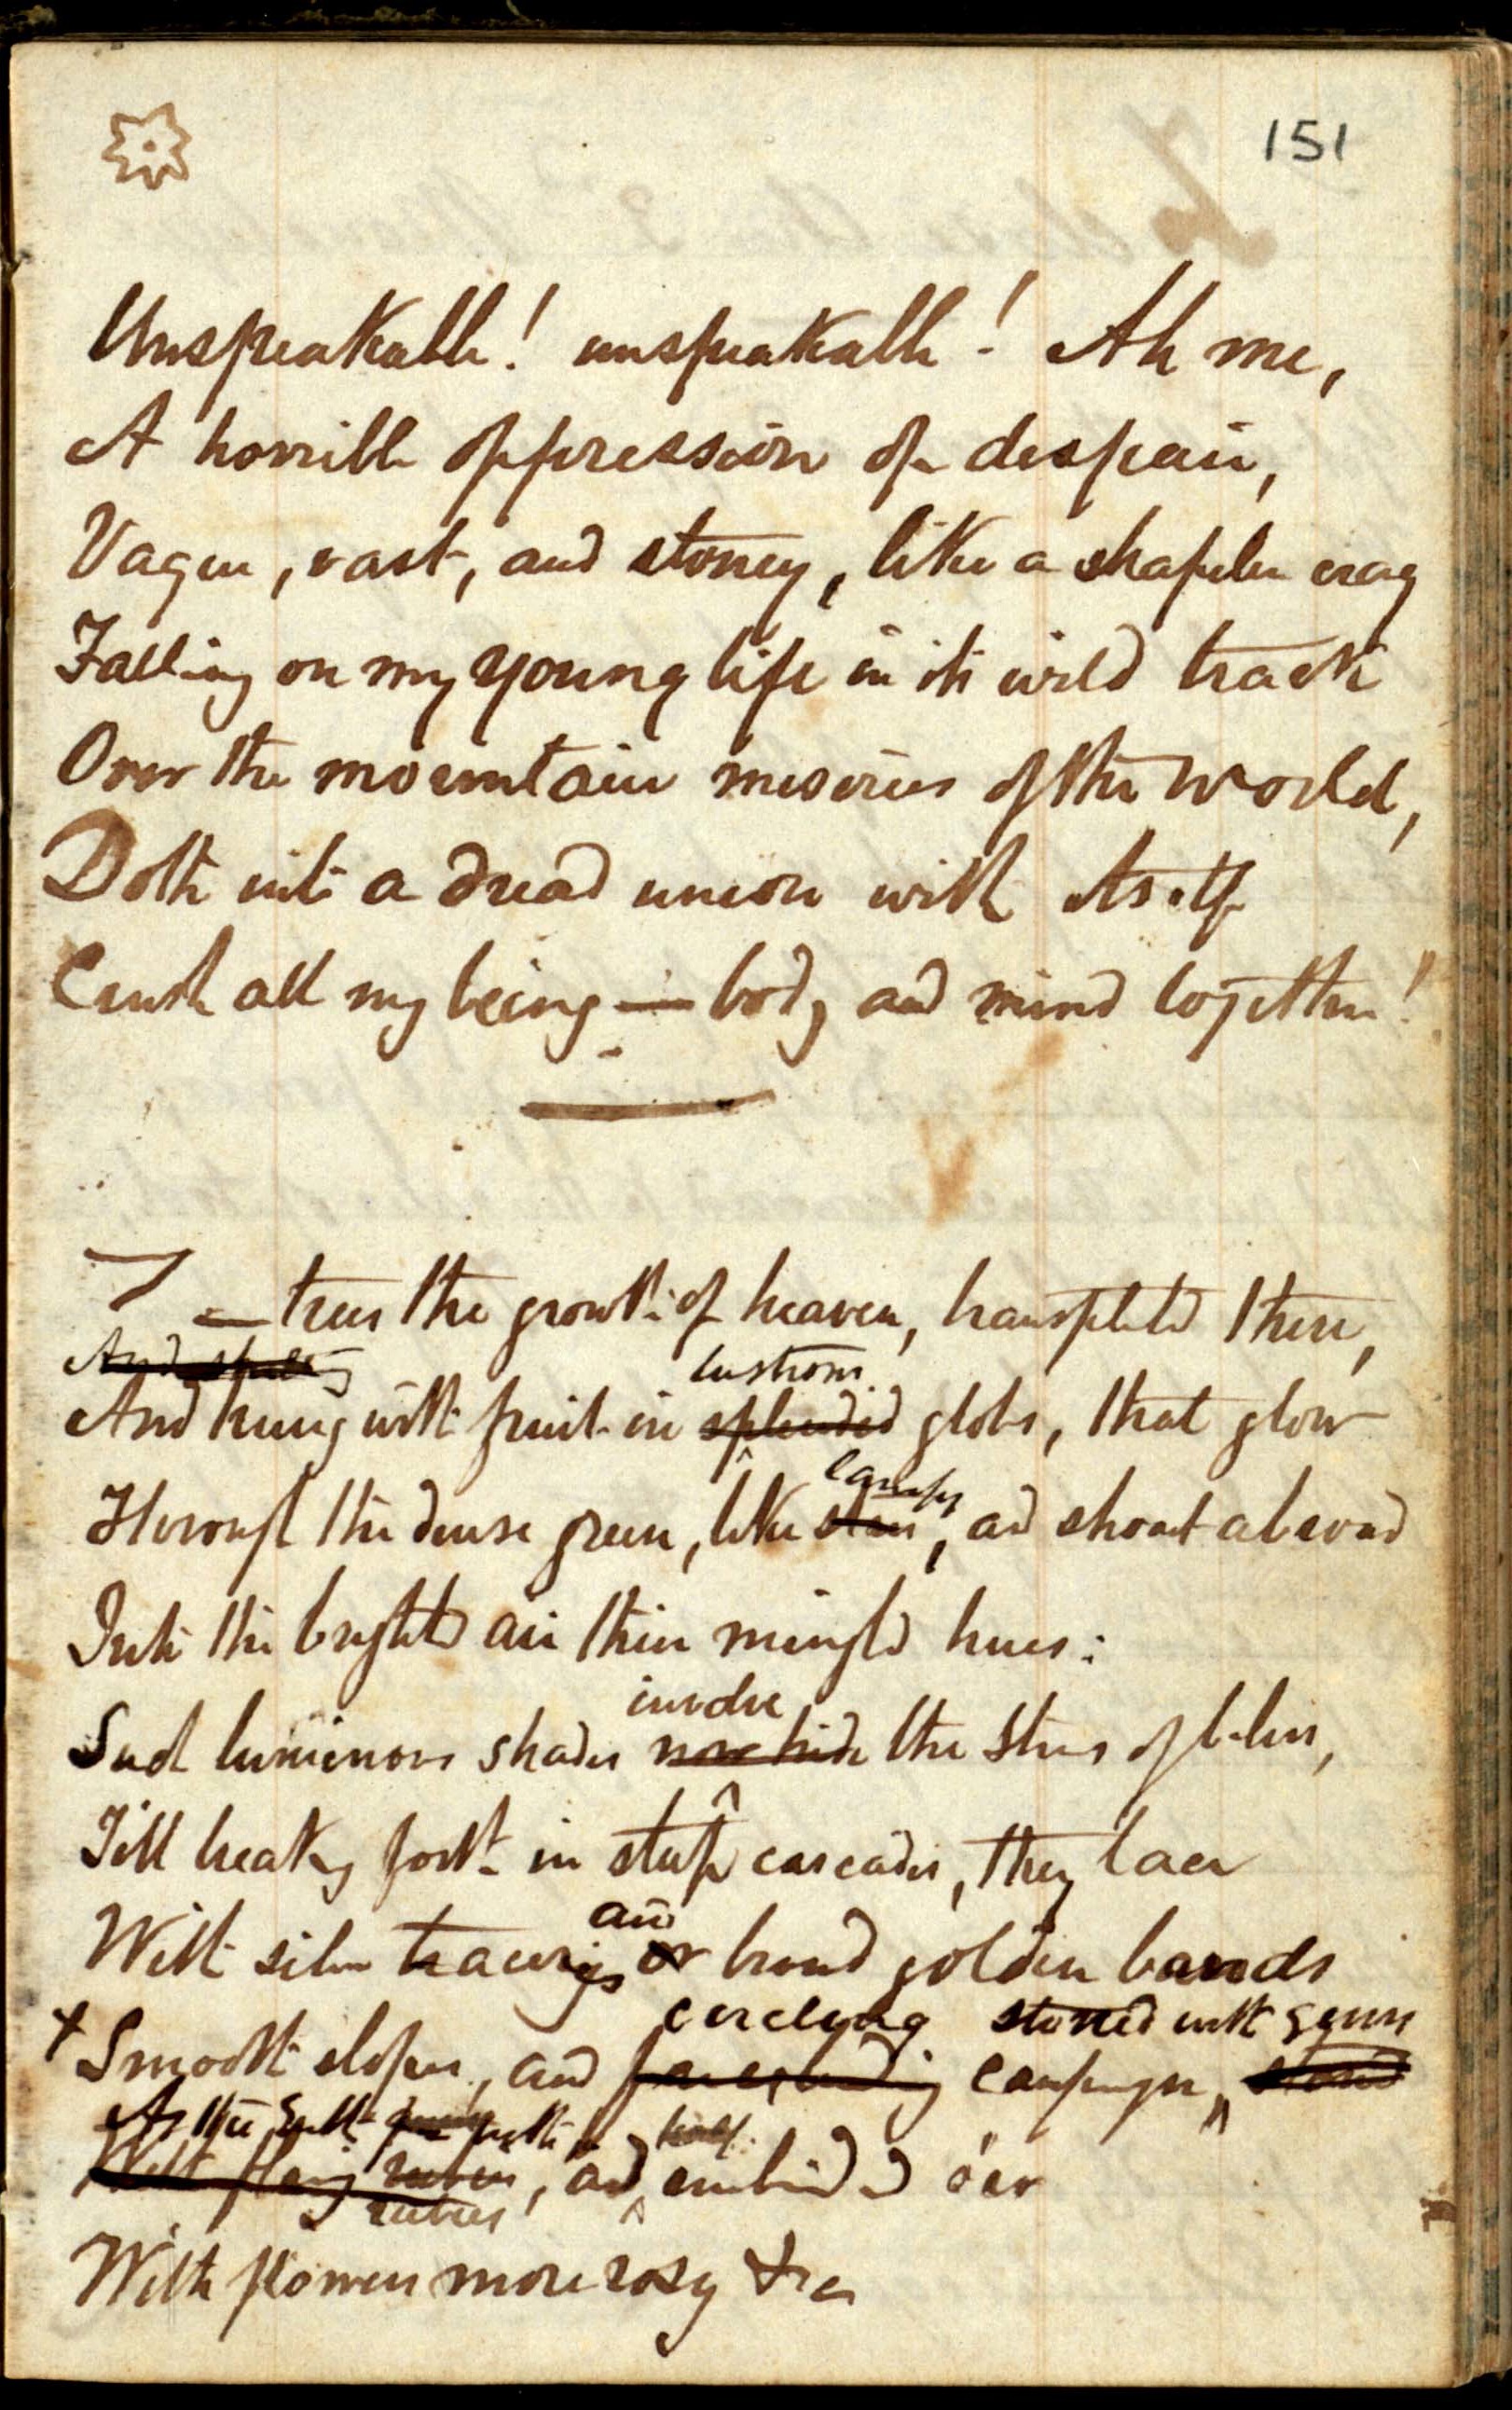 151
Unspeakable! unspeakable! Ah me,
A horrible oppression of despair,
Vague, vast, and stoney, like a shapeless crag
Falling on my young life in its wild track
Over the mountain miseries of the World,
Doth into a dread union with itself
Crush all my being — body and mind together!
— trees the growth of heaven, transplanted there,
And
lustrous
And hung with fruit in splended globes, that glow
lamps
Through the dense green, like stars, and shoot abroad
Into the brighten'd air their mingled hues:
involve
Such luminous shades now hide the streams
Till breaking forth in steep cascades, they lace
and
With silver tracerings or broad golden bands
circleing stoned with gems
Smooth slopes, and campaigns,
As the
half
With rubies, and embined o'er
rubies
With flowers more rosy